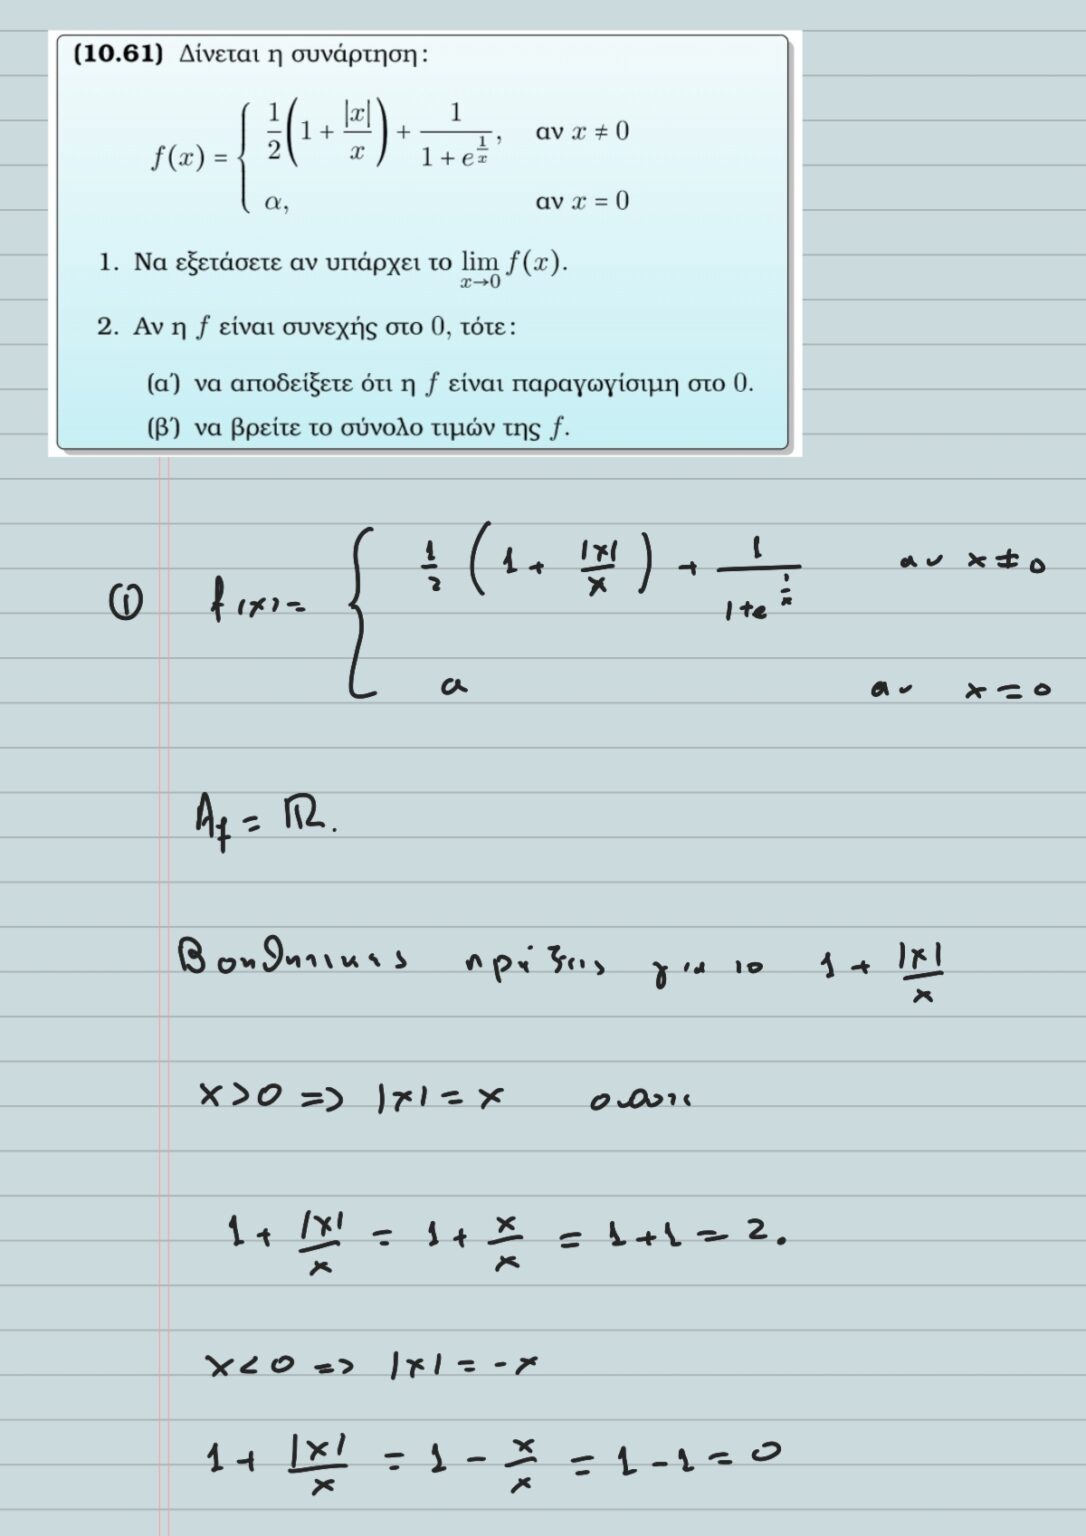 (10.61) Δίνεται η συνάρτηση:
f(x) = { 1/2 (1 + |x|/x) + 1/(1 + e^(1/x)), αν x ≠ 0
α, αν x = 0
1. Να εξετάσετε αν υπάρχει το lim x→0 f(x).
2. Αν η f είναι συνεχής στο 0, τότε:
(α΄) να αποδείξετε ότι η f είναι παραγωγίσιμη στο 0.
(β΄) να βρείτε το σύνολο τιμών της f.
① f(x) = { 1/2 (1 + |x|/x) + 1/(1+e^(1/x)) αν x ≠ 0
α αν x = 0
A_f = ℝ.
Βοηθητικές πράξεις για το 1 + |x|/x
x > 0 => |x| = x οπότε
1 + |x|/x = 1 + x/x = 1 + 1 = 2.
x < 0 => |x| = -x
1 + |x|/x = 1 - x/x = 1 - 1 = 0